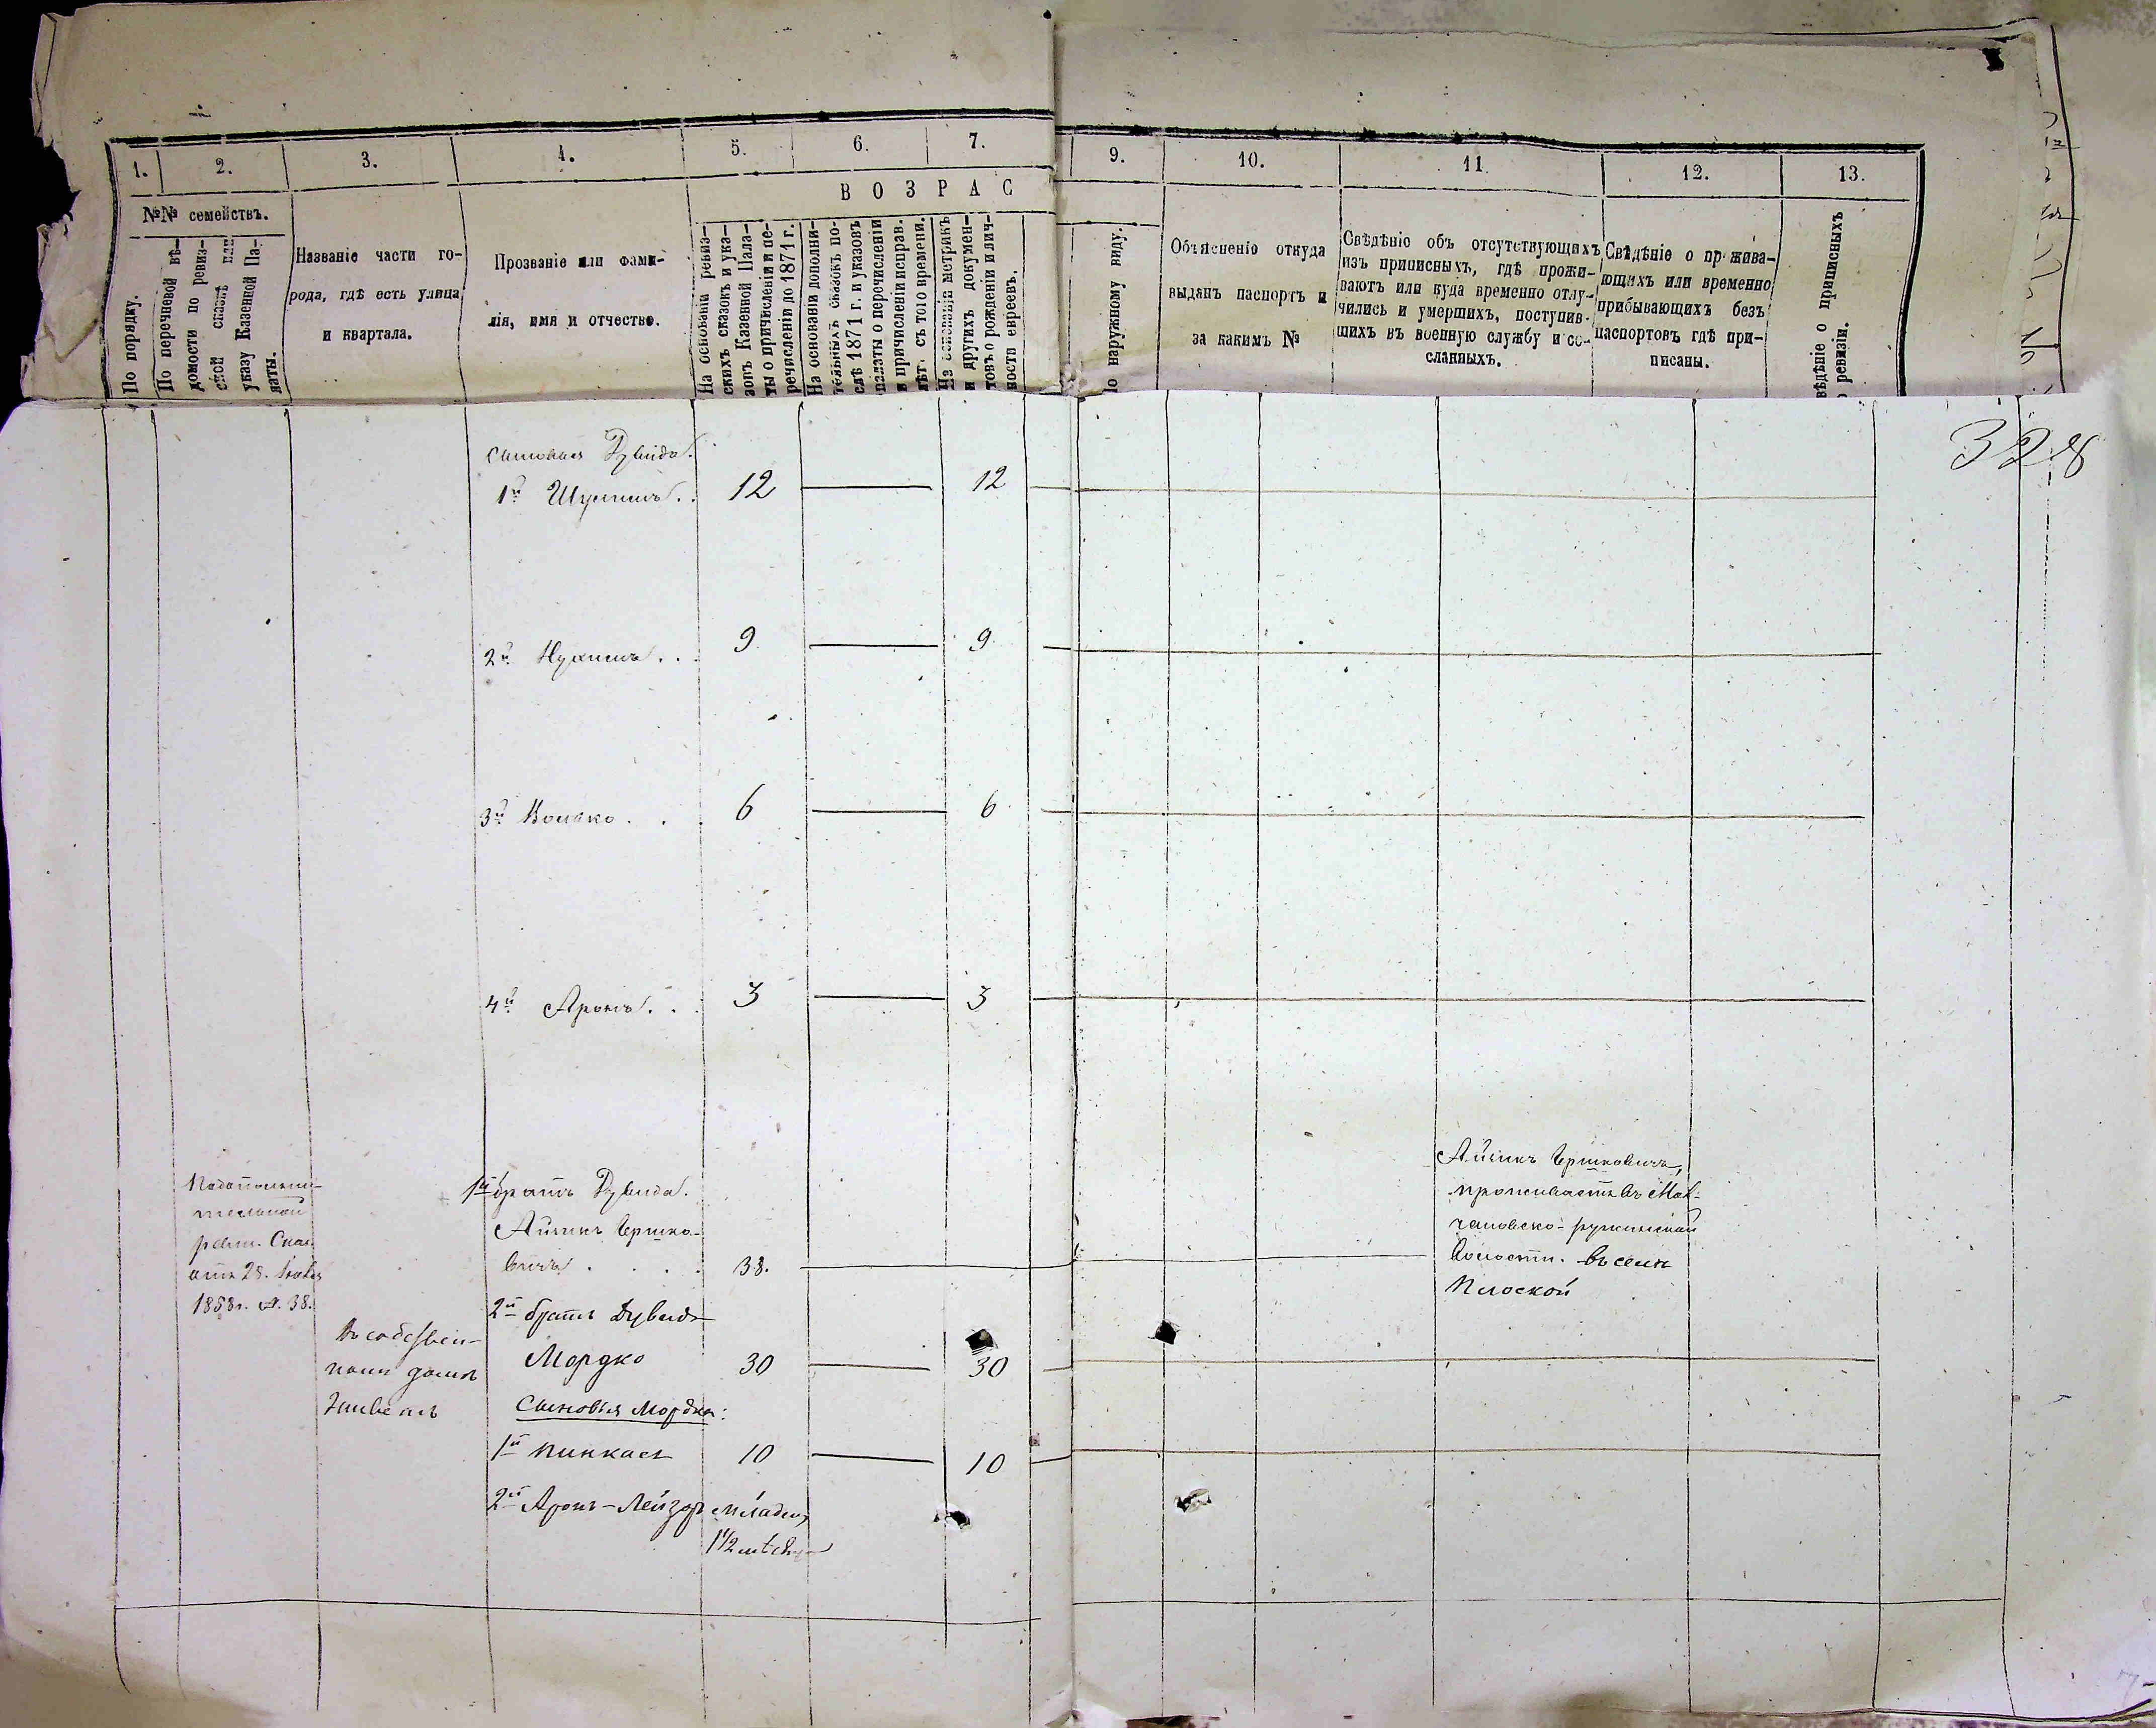 1.
2.
3.
4.
5.
6.
7.
9.
10.
11.
12.
13.
№№ семействъ.
По порядку.
По перечневой вѣ-
домости по ревиз-
ской сказкѣ или
указу Казенной Па-
латы.
Названіе части го-
рода, гдѣ есть улица
и квартала.
Прозваніе или фами-
лія, имя и отчество.
ВОЗРАС
На основаніи ревиз-
скихъ сказокъ и ука-
зовъ Казенной Пала-
ты о причисленіи и пе-
речисленіи до 1871 г.
На основаніи дополни-
тельныхъ сказокъ по-
слѣ 1871 г. и указовъ
палаты о перечисленіи
и причисленіи исправ.
лѣт. съ того времени.
На основаніи метрикъ
и другихъ докумен-
товъ о рожденіи и лич-
ности евреевъ.
По наружному виду.
Объясненіе откуда
выданъ паспортъ и
за какимъ №
Свѣдѣніе объ отсутствующихъ
изъ приписныхъ, гдѣ прожи-
ваютъ или куда временно отлу-
чились и умершихъ, поступив-
шихъ въ военную службу и со-
сланныхъ.
Свѣдѣніе о прожива-
ющихъ или временно
прибывающихъ безъ
паспортовъ гдѣ при-
писаны.
свѣдѣніе о приписныхъ
ревизіи.
328
Сыновья Дувида.
1й Шулимъ.. 12 12
2й Нухимъ... 9 9
3й Волько... 6 6
4й Аронъ... 3 3
1й братъ Дувида.
Айзикъ Гершко-
вичъ.... 38.
2й братъ Дувида
Мордко 30 30
Сыновья Мордка:
1й Пинкасъ 10 10
2й Аронъ-Лейзоръ младен,
1 1/2
По дополни-
тельной
ревиз. Сказ.
отъ 28.
1858 г. 38.
Въ собствен-
номъ домѣ
Айзикъ Гершковичъ,
проживаетъ въ
волости. въ селѣ
Плоской